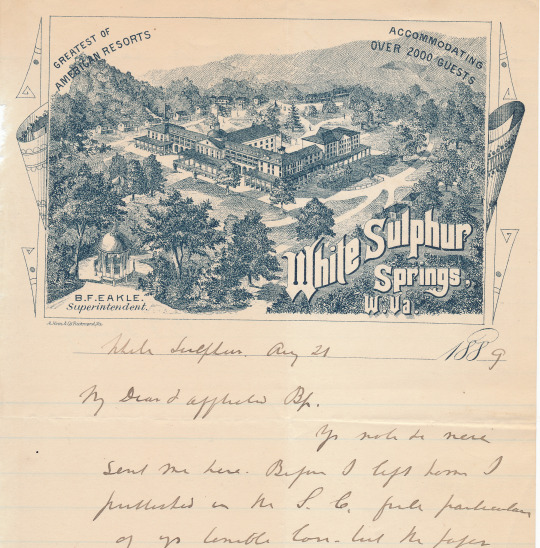 GREATEST OF
AMERICAN RESORTS
ACCOMMODATING
OVER 2000 GUESTS
White Sulphur
Springs,
W.Va.
B.F. EAKLE.
Superintendent.
White Sulphur. Aug 21 1889
My Dear & afflicted Bp.
Yr note de were
sent me here. Before I left home I
published in the S. C. full particulars
of yr terrible loss - but the paper